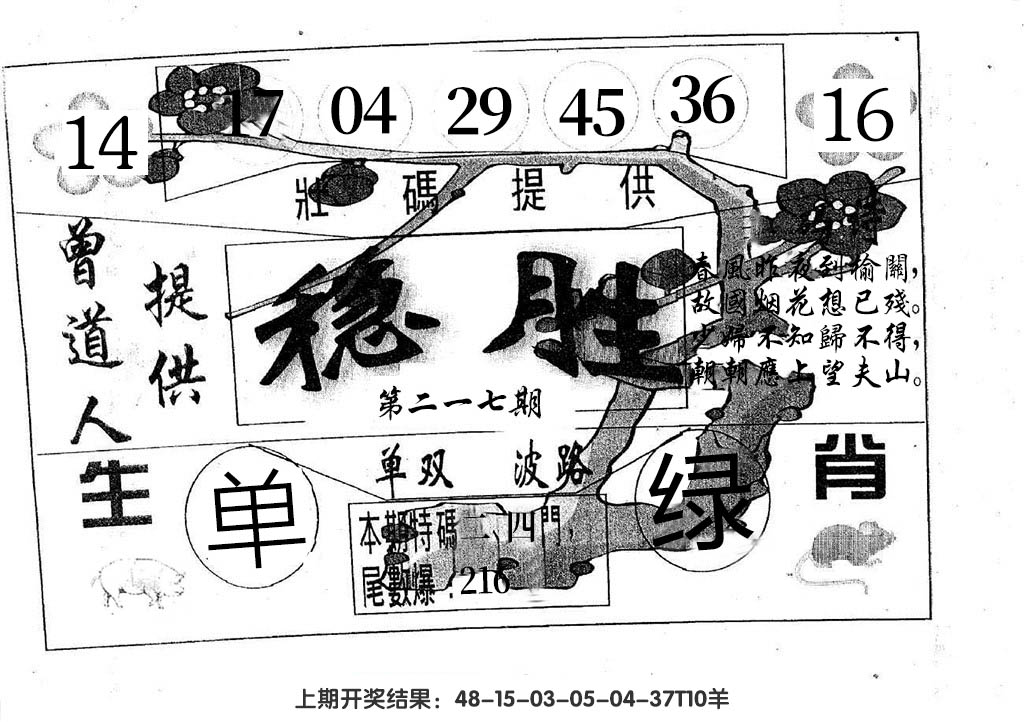 14 17 04 29 45 36 16
壯碼提供
特
曾道人
提供
稳胜
第二一七期
春風昨夜到榆關，
故國烟花想已殘。
少婦不知歸不得，
朝朝應上望夫山。
单双 波路
生 单 绿 肖
本期特碼二、四門，
尾數爆：216
上期开奖结果：48-15-03-05-04-37T10羊